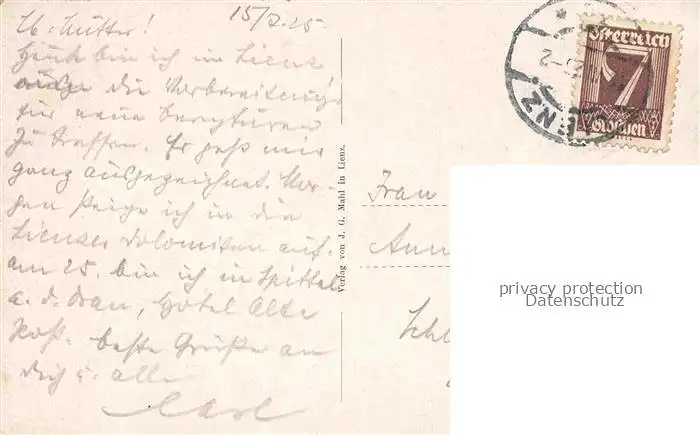 15/7.25
Lb. Mutter!
Heute bin ich in Lienz
die Vorbereitung
für neue Bergturen
zu treffen. Es geht mir
ganz ausgezeichnet. Mor-
gen steige ich in die
Lienzer Dolomiten auf.
am 25. bin ich in Spittal
a. d. Drau, Hotel Alte
Post. beste Grüße an
dich u. alle
Carl
Verlag von J. G. Mahl in Lienz.
Österreich
7
Groschen
Frau
Ann
Schl
privacy protection
Datenschutz